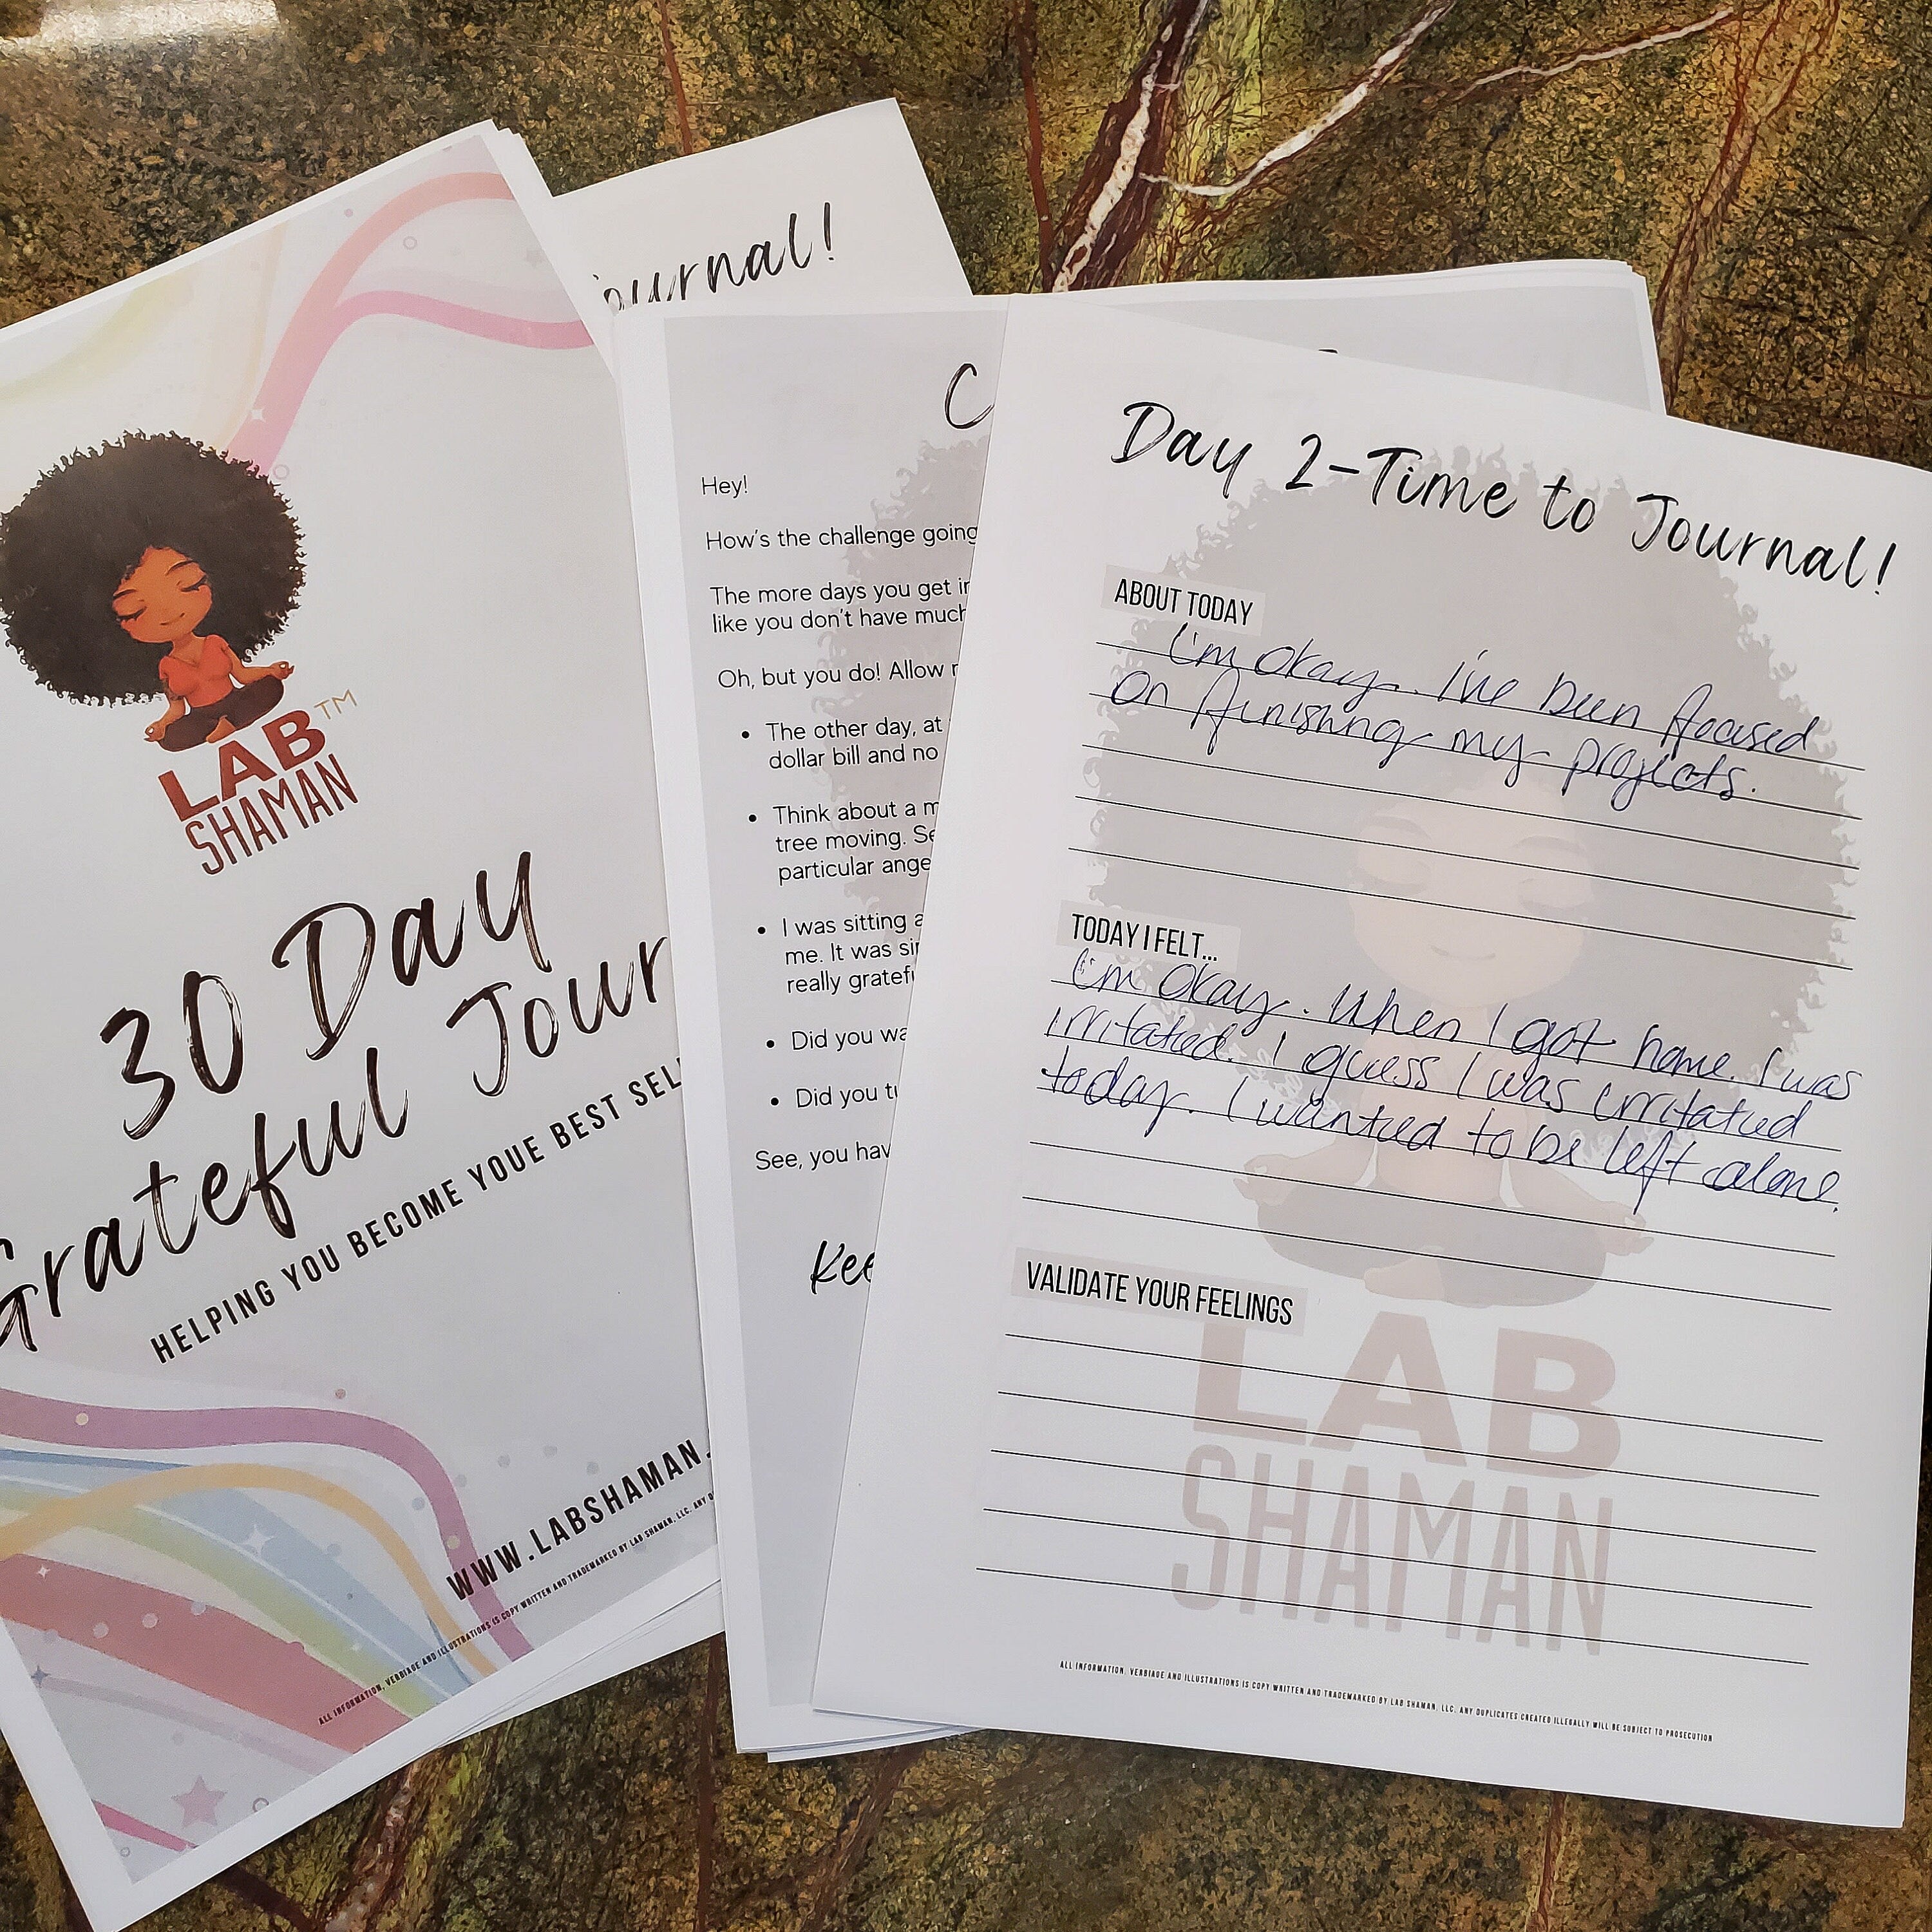 LAB™
SHAMAN
30 Day
Grateful Jour
HELPING YOU BECOME YOUE BEST SEL
WWW.LABSHAMAN.
ALL INFORMATION, VERBIAGE AND ILLUSTRATIONS IS COPY WRITTEN AND TRADEMARKED BY LAB SHAMAN, LLC. ANY D
ournal!
C
Hey!
How's the challenge going
The more days you get in
like you don't have much
Oh, but you do! Allow
The other day, at
dollar bill and no
Think about a m
tree moving. Se
particular ange
I was sitting a
me. It was sin
really gratefu
Did you wa
Did you tu
See, you hav
Kee
Day 2-Time to Journal!
ABOUT TODAY
I'm okay. I've been focused
on finishing my projects.
TODAY I FELT...
I'm okay. When I got home I was
irritated. I guess I was irritated
today. I wanted to be left alone.
VALIDATE YOUR FEELINGS
LAB
SHAMAN
ALL INFORMATION, VERBIAGE AND ILLUSTRATIONS IS COPY WRITTEN AND TRADEMARKED BY LAB SHAMAN, LLC. ANY DUPLICATES CREATED ILLEGALLY WILL BE SUBJECT TO PROSECUTION